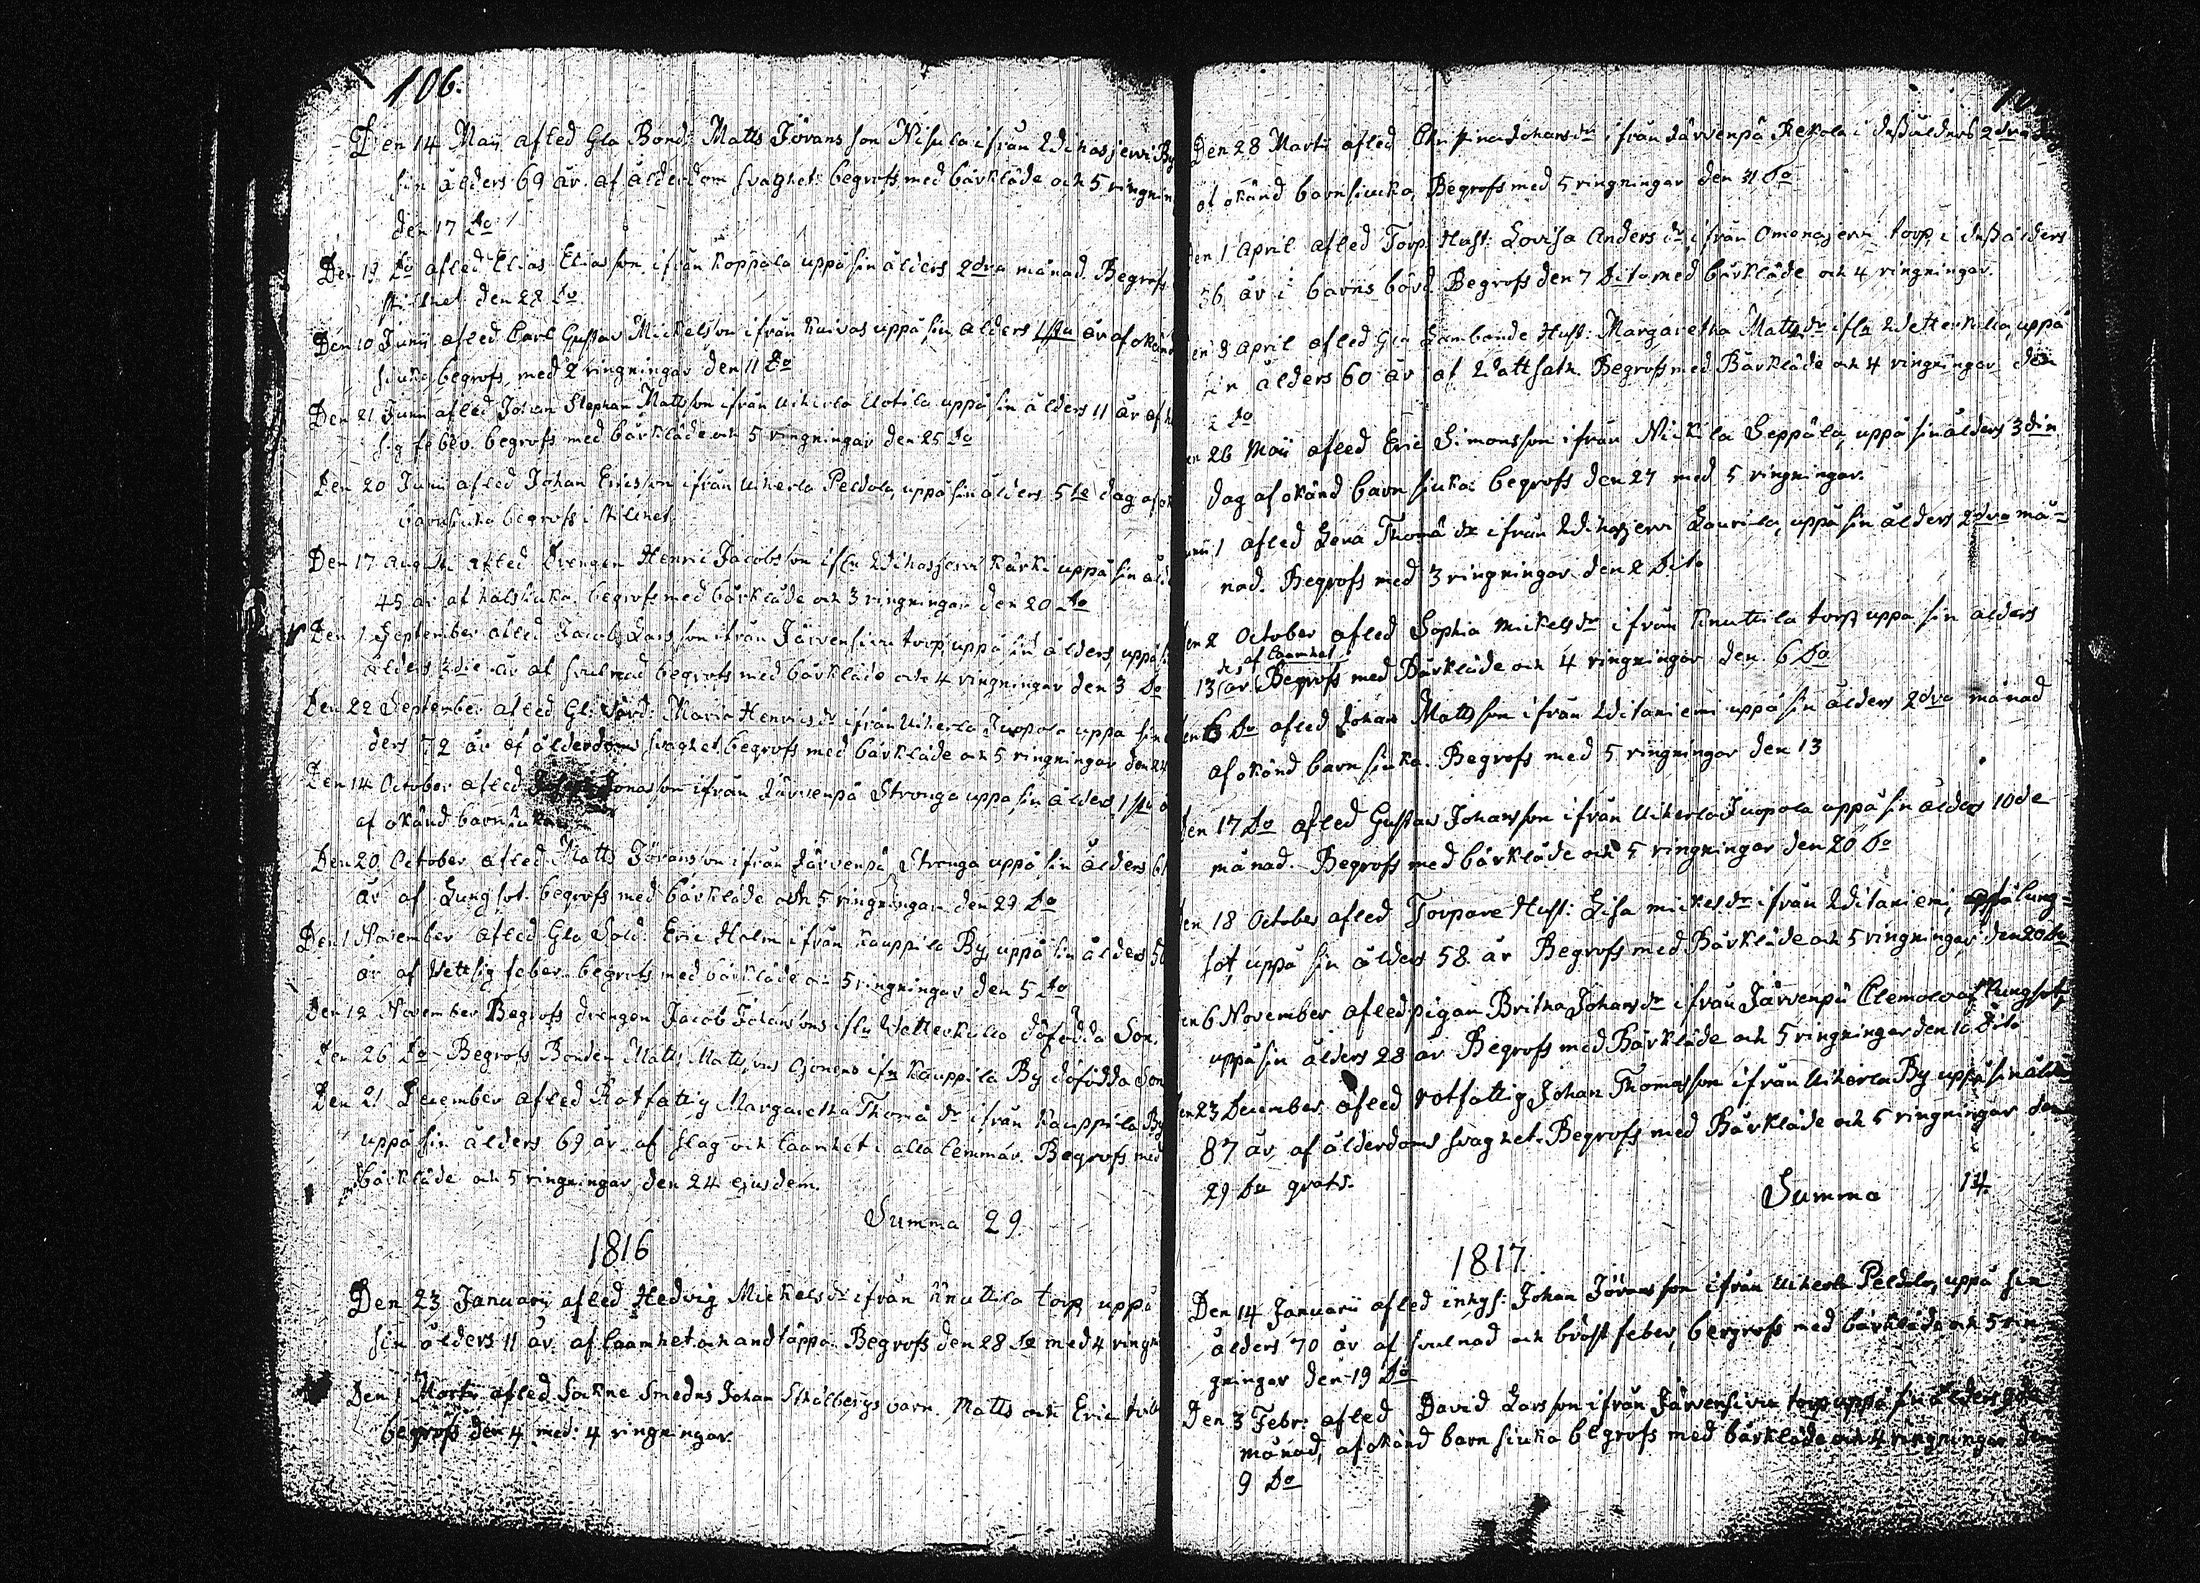 106.
Den 14 Maii afled Gla Bond: Matts Jörans son Nisula ifrån Widhasjerwi By
sin ålders 69 år af ålderdom svaghet: begrofs med bårkläde och 5 ringnin
den 17 Do
Den 19 Do afled Elias Elias son ifrån Koppala uppå sin ålders 2dra månad. Begrofs
stilhet den 28 Do
Den 10 Junii afled Carl Gustav Mickelsson ifrån Kuivas uppå sin ålders 1sta år af okänd
siuka begrofs med 2 ringningar den 11 Do
Den 21 Junii afled Johan Stephan Mattsson ifrån Uikerla Uotila uppå sin ålders 11 år af
sig feber. begrofs med bårkläde och 5 ringningar den 25 Do
Den 20 Junii afled Johan Ericsson ifrån Uikerla Peldola, uppå sin ålders 5te dag af
barnsiuka begrofs i stilhet.
Den 17 Augusti afled Drengen Henric Jacobsson ifrn Widhasjerwi Kärki uppå sin åld
45 år af halssiuka. begrofs med bårkläde och 3 ringningar den 20 Do
Den 1 September afled Jacob Lars son ifrån Järvensivu torp, uppå sin ålders, uppå
ålders 3die år af svulnad begrofs med bårkläde och 4 ringningar den 3 Do
Den 22 September afled Gl: Värd: Maria Henricsdr ifrån Uikerla Juopola uppå sin
ders 72 år af ålderdoms svaghet begrofs med bårkläde och 5 ringningar den 24
Den 14 October afled Jonasson ifrån Järvenpä Stronga uppå sin ålders 1sta
af okänd barnsiuka
Den 20 October afled Matts Jöransson ifrån Järvenpä Stronga uppå sin ålders 61
år af Lungsot. begrofs med bårkläde och 5 ringningar den 29 Do
Den 1 November afled Gla Sold: Eric Holm ifrån Kauppila By, uppå sin ålders 50
år af Vettsig feber begrofs med bårkläde och 5 ringningar den 5 Do
Den 12 November Begrofs drengen Jacob Johanssons ifrn Wetterkulla döfödda Son.
Den 26 Do Begrofs Bonden Matts Mattssons Ojonens ifrn Kauppila By döfödda Son
Den 21 December afled Rotfattig Margaretha Thomä dr ifrån Kauppila By
uppå sin ålders 69 år af slag och laamhet i alla lemmar. Begrofs med
bårkläde och 5 ringningar den 24 ejusdem.
Summa 29
1816
Den 23 Januarii afled Hedvig Mickels dr ifrån Knuttila torp uppå
sin ålders 11 år af laamhet och andtäppa. Begrofs den 28 De med 4 ringn
Den 1 Martii afled Sockne Smedns Johan Stålbergs barn. Matts och Eric tvill
begrofs den 4 med: 4 ringningar.
Den 28 Martii afled Christina Johans dr ifrån Järvenpä Rekola i dess ålders 2dra
af okänd barnsiuka, Begrofs med 5 ringningar den 31 Do
en 1 April afled Torp: Hust: Lovisa Anders dr ifrån Omenajerwi torp i dess ålders
36 år i barns börd Begrofs den 7 Dito med bårkläde och 4 ringningar.
en 9 April afled Gla Lambonde Hust: Margaretha Matts dr ifrn Wetterkulla, uppå
sin ålders 60 år af Wattsoth. Begrofs med Bårkläde och 4 ringningar den
Do
en 26 Maii afled Eric Simonsson ifrån Nickila Seppäla, uppå sin ålders 3die
dag af okänd barn siuka begrofs den 27 med 5 ringningar.
1 afled Lena Thomä dr ifrån Widhasjerwi Laurila, uppå sin ålders 2dra må-
nad. Begrofs med 3 ringningar den 2 Dito
en 2 October afled Sophia Mickels dr ifrån Knuttila torp uppå sin ålders
af laamhet
13 år Begrofs med Bårkläde och 4 ringningar den 6 Do
en 6 Do afled Johan Matts son ifrån Witaniemi uppå sin ålders 2dra månad
af okänd barn siuka. Begrofs med 5 ringningar den 13
en 17 Do afled Gustav Johansson ifrån Uikerla Juopola uppå sin ålders 10de
månad. Begrofs med bårkläde och 5 ringningar den 20 Do
en 18 October afled Torpare Hust: Lisa mickels dr ifrån Witaniemi, lung-
sot, uppå sin ålders 58 år Begrofs med Bårkläde och 5 ringningar den 20 Do
en 6 November afled pigan Britha Johans dr ifrån Järvenpä Clemola af lungsot
uppå sin ålders 28 år Begrofs med Bårkläde och 5 ringningar den 10 Dito
en 23 December afled rotfattig Johan Thomasson ifrån Uikerla By uppå sin ålde
87 år af ålderdoms svaghet. Begrofs med Bårkläde och 5 ringningar den
29 Do gratis.
Summa 14
1817
Den 14 Januarii afled inhys: Johan Jörans son ifrån Uikerla Peldola, uppå sin
ålders 70 år af svulnad och bröst feber, bergrofs med bårkläde och 5 rin
gningar den 19 Do
Den 3 Febr: afled David Lars son ifrån Järvensivu torp uppå sin ålders
månad, af okänd barn siuka begrofs med bårkläde och 4 ringningar den
9 Do